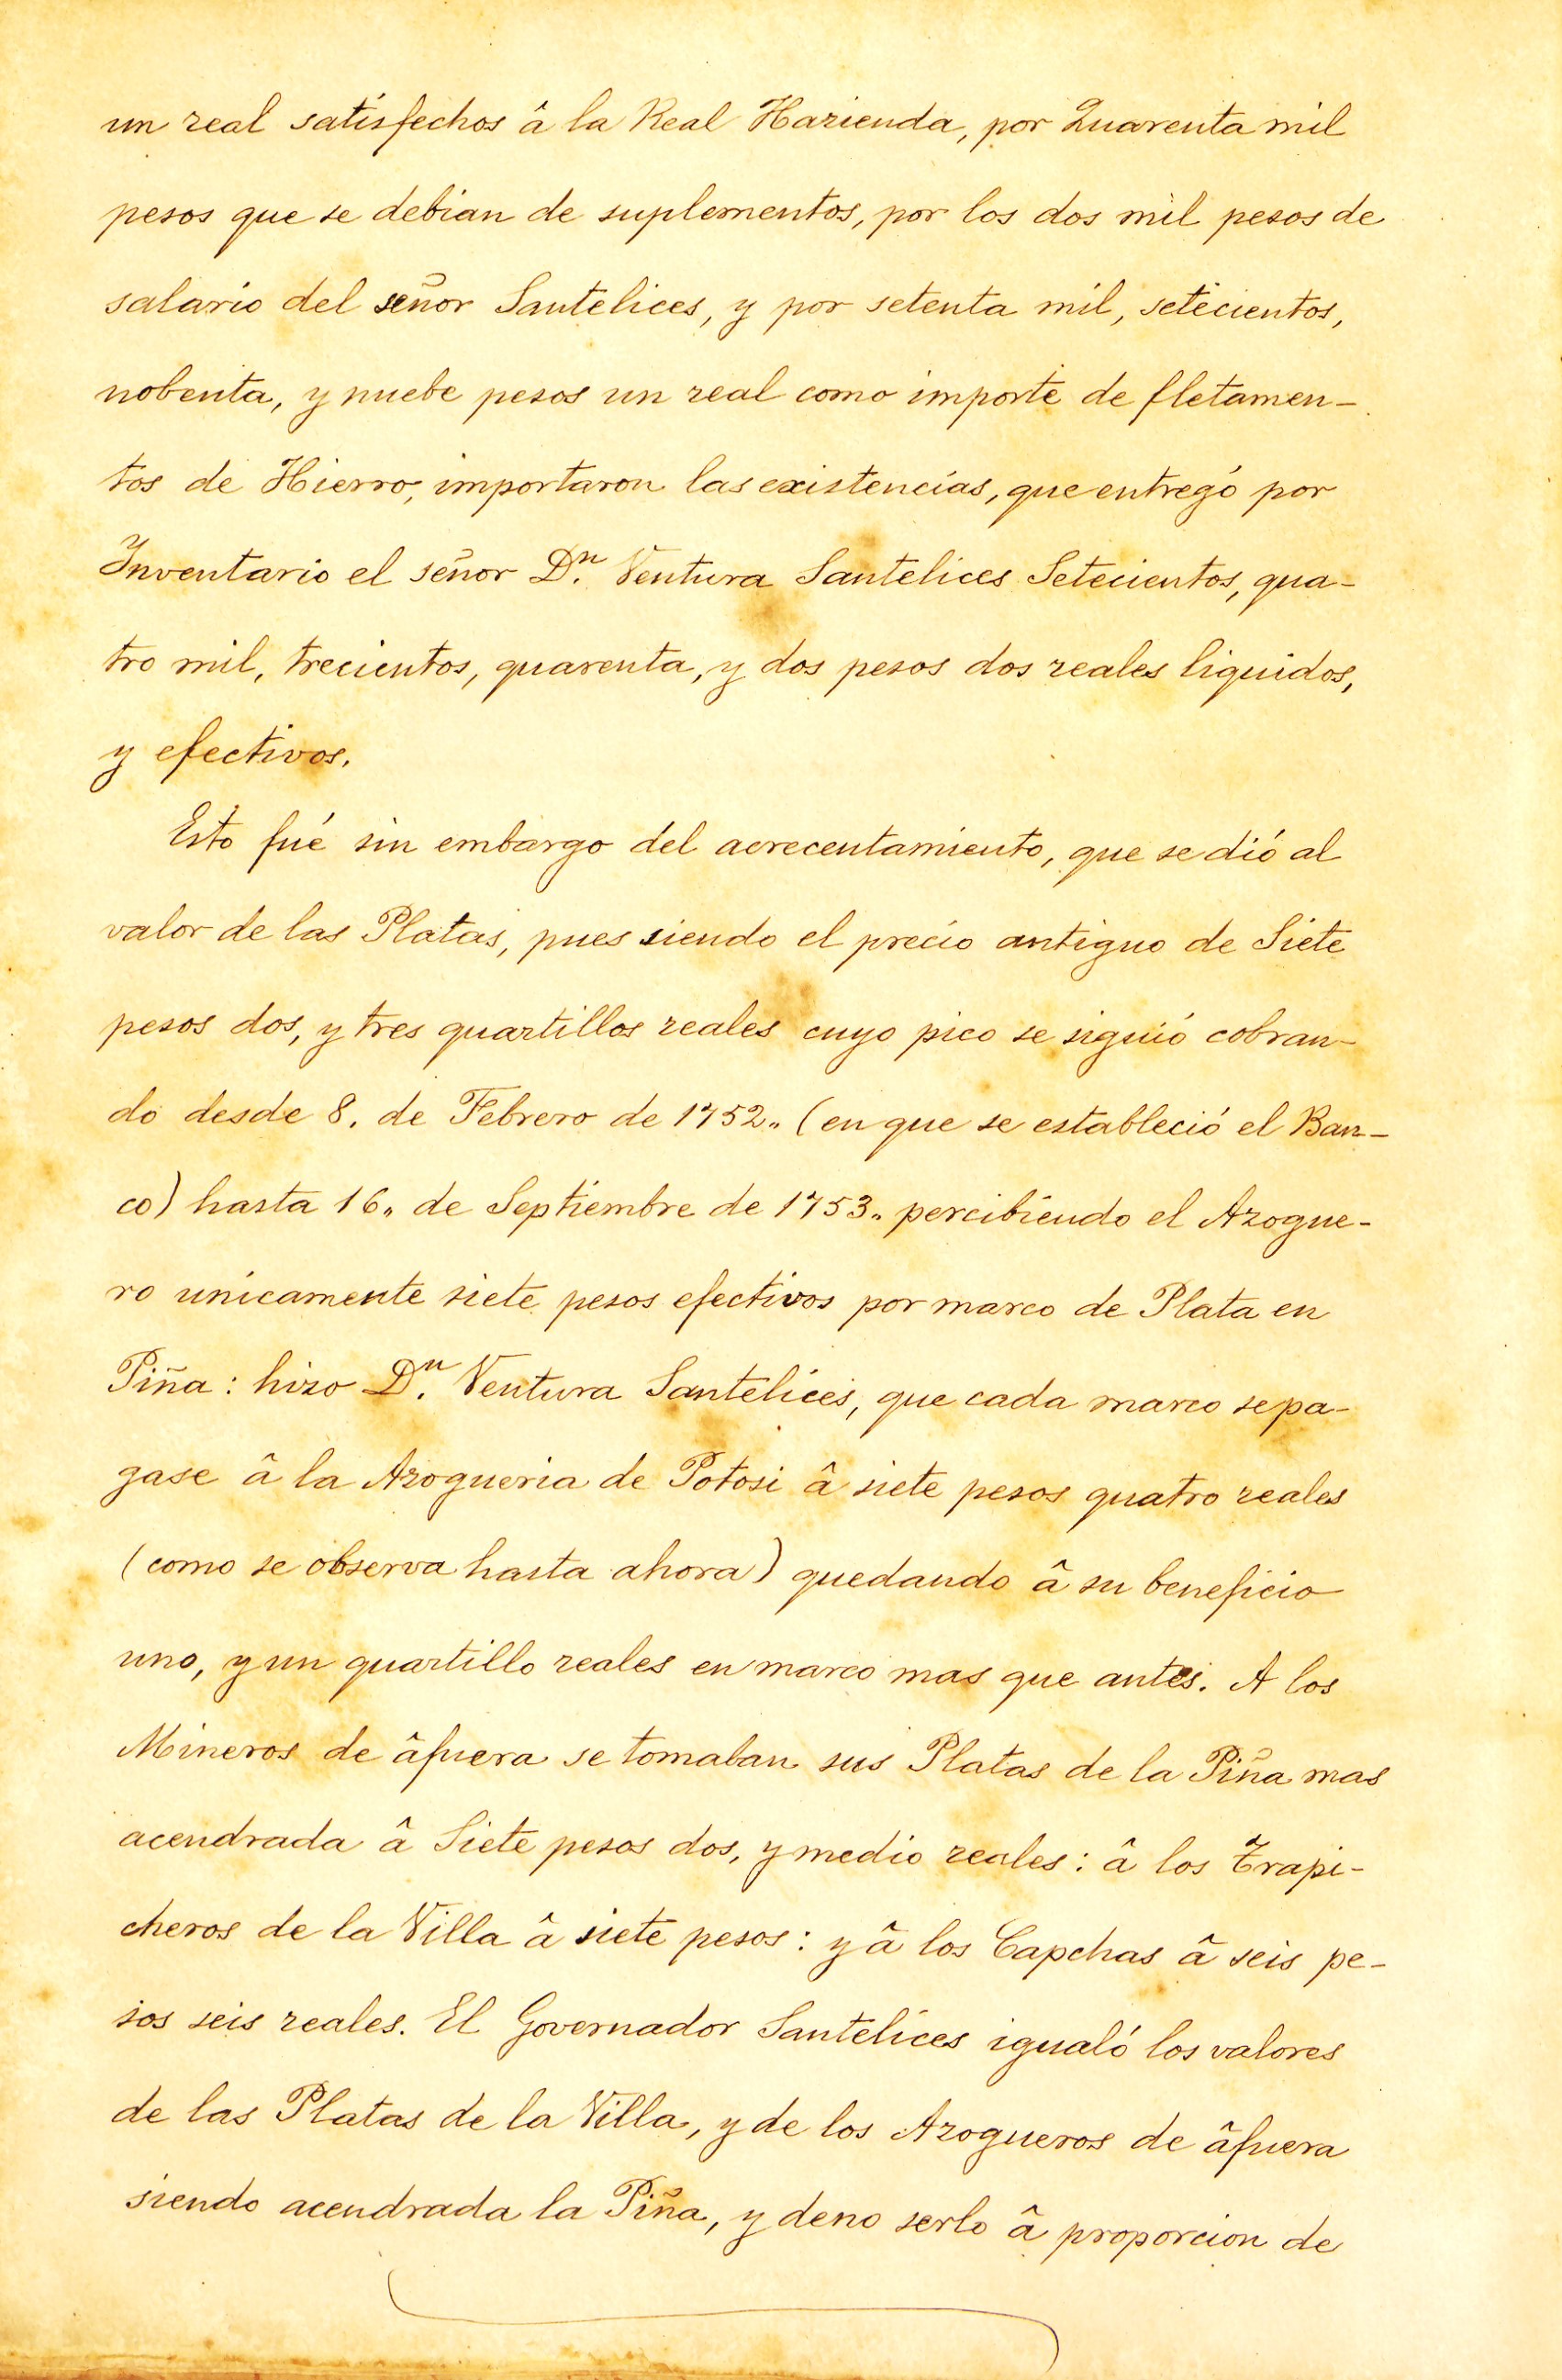 un real satisfechos â la Real Hazienda, por Quarenta mil
pesos que se debian de suplementos, por los dos mil pesos de
salario del señor Santelices, y por setenta mil, setecientos,
nobenta, y nuebe pesos un real como importe de fletamen-
tos de Hierro, importaron las existencias, que entregó por
Inventario el señor Dn. Ventura Santelices Setecientos, qua-
tro mil, trecientos, quarenta, y dos pesos dos reales liquidos,
y efectivos.
Esto fué sin embargo del acrecentamiento, que se dió al
valor de las Platas, pues siendo el precio antiguo de Siete
pesos dos, y tres quartillos reales cuyo pico se siguió cobran-
do desde 8. de Febrero de 1752.. (en que se estableció el Ban-
co) hasta 16.. de Septiembre de 1753.. percibiendo el Azogue-
ro unicamente siete pesos efectivos por marco de Plata en
Piña: hizo Dn. Ventura Santelices, que cada marco se pa-
gase â la Azogueria de Potosi â siete pesos quatro reales
(como se observa hasta ahora) quedando â su beneficio
uno, y un quartillo reales en marco mas que antes. A los
Mineros de âfuera se tomaban sus Platas de la Piña mas
acendrada â Siete pesos dos, y medio reales: â los Trapi-
cheros de la Villa â siete pesos: y â los Capchas â seis pe-
sos seis reales. El Governador Santelices igualó los valores
de las Platas de la Villa, y de los Azogueros de âfuera
siendo acendrada la Piña, y de no serlo â proporcion de